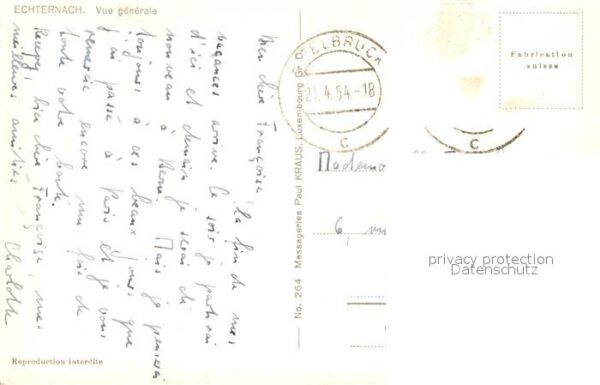 ECHTERNACH. Vue générale
Ma chère Françoise,
la fin de mes
vacances arrive. Ce soir je partirai
d'ici et demain je serai de
nouveau à Berne. Mais je penserai
toujours à ces beaux jours que
j'ai passé à Paris et je vous
remercie encore une fois de
toute votre bonté.
Recevez, bien chère Françoise, mes
meilleures amitiés
Charlotte
Reproduction interdite
No. 264 Messageries Paul KRAUS, Luxembourg Gr. D.
ETTELBRUCK
21.4.54.-18
C
C
Fabrication
suisse
6,
privacy protection
Datenschutz